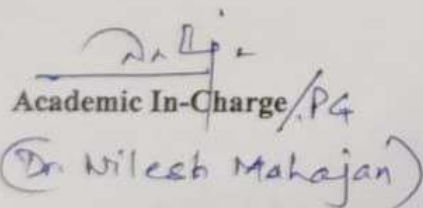 Academic In-Charge/PG
(Dr. Nilesh Mahajan)